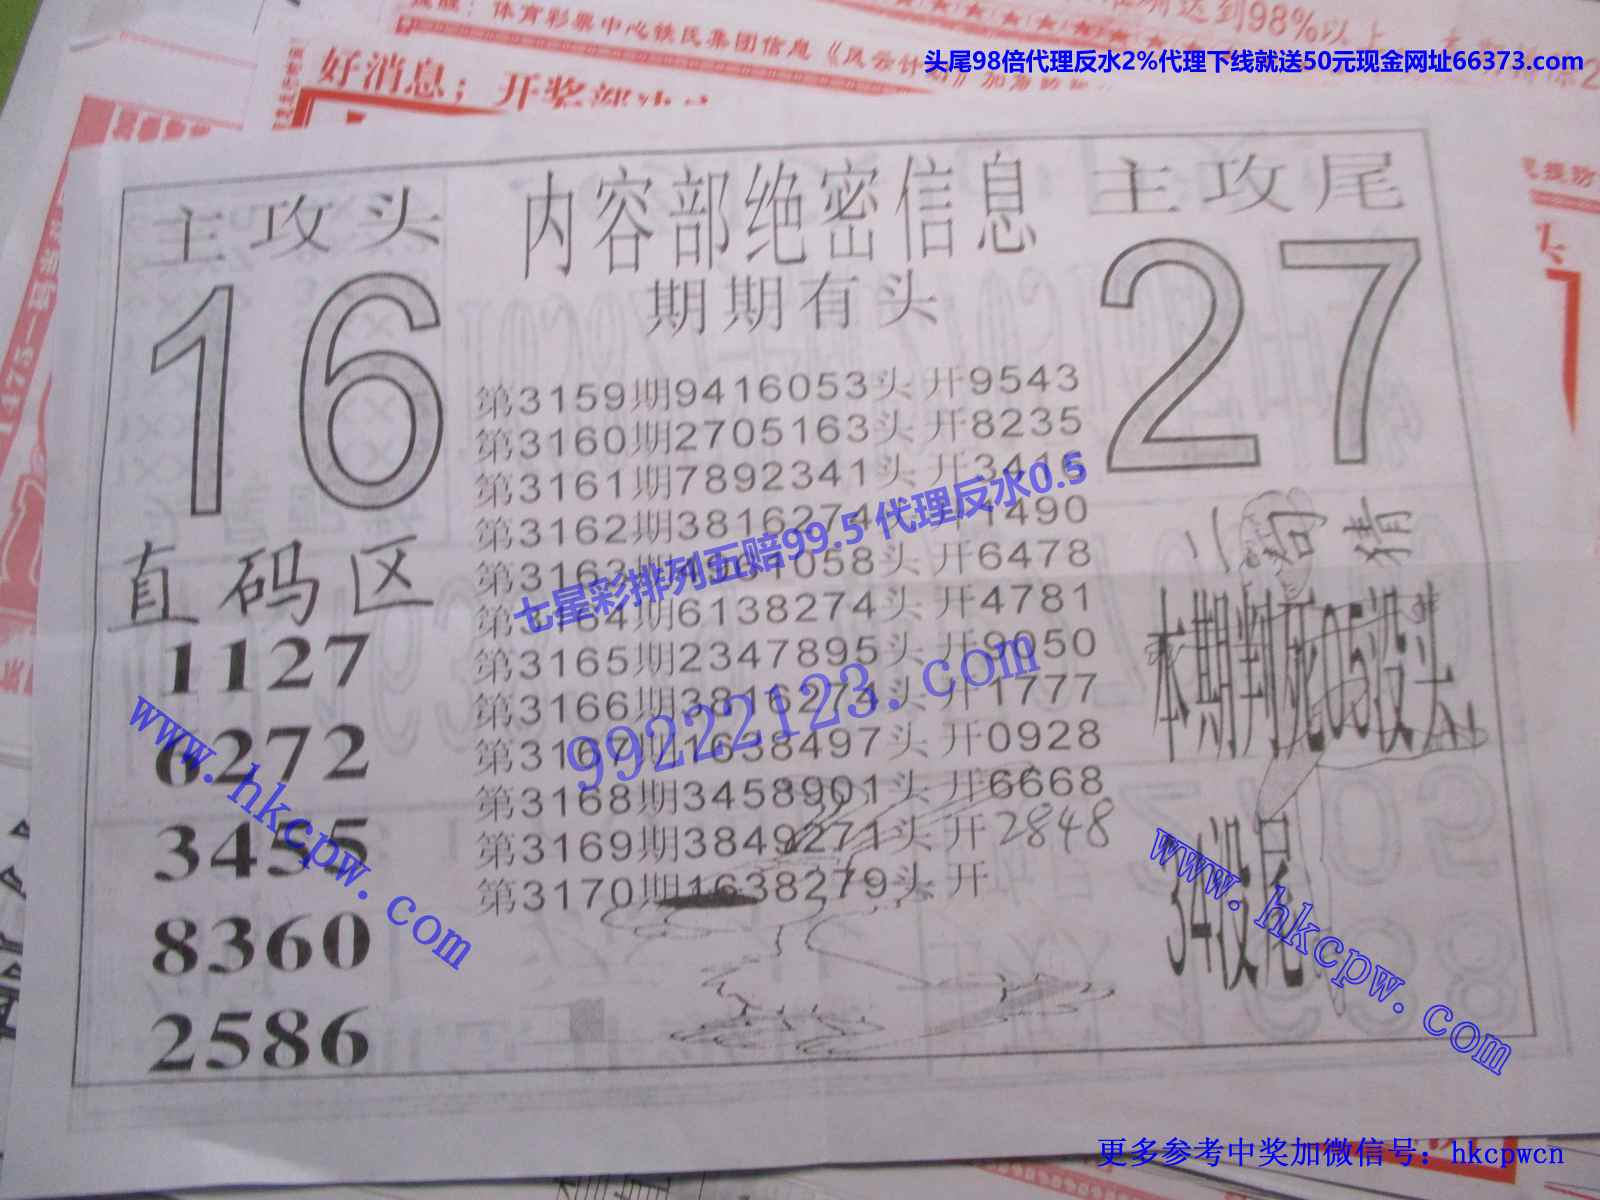 头尾98倍代理反水2%代理下线就送50元现金网址66373.com
体育彩票中心铁民集团信息《风云计
好消息；开奖
主攻头
16
内容部绝密信息
期期有头
主攻尾
27
第3159期9416053头 开9543
第3160期2705163头 开8235
第3161期7892341头 开3416
第3162期3816274 1490
第3163期 1058头 开6478
第3164期6138274头 开4781
第3165期2347895头 开9050
第3166期3816274头 开1777
第3167期1638497头 开0928
第3168期3458901头 开6668
第3169期3849271头 开2848
第3170期1638279头 开
直码区
1127
6272
3455
8360
2586
一句猜
本期判死05没头
34没尾
七星彩排列五赔99.5 代理反水0.5
99222123.com
www.hkcpw.com
www.hkcpw.com
更多参考中奖加微信号：hkcpwcn